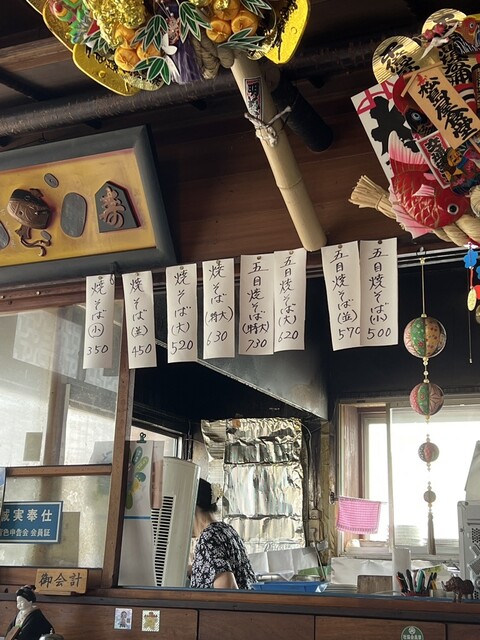 寿
五目焼そば(小)
500
五目焼そば(並)
570
五目焼そば(大)
620
五目焼そば(特大)
730
焼そば(特大)
630
焼そば(大)
520
焼そば(並)
450
焼そば(小)
350
誠実奉仕
色申告会 会員証
御会計